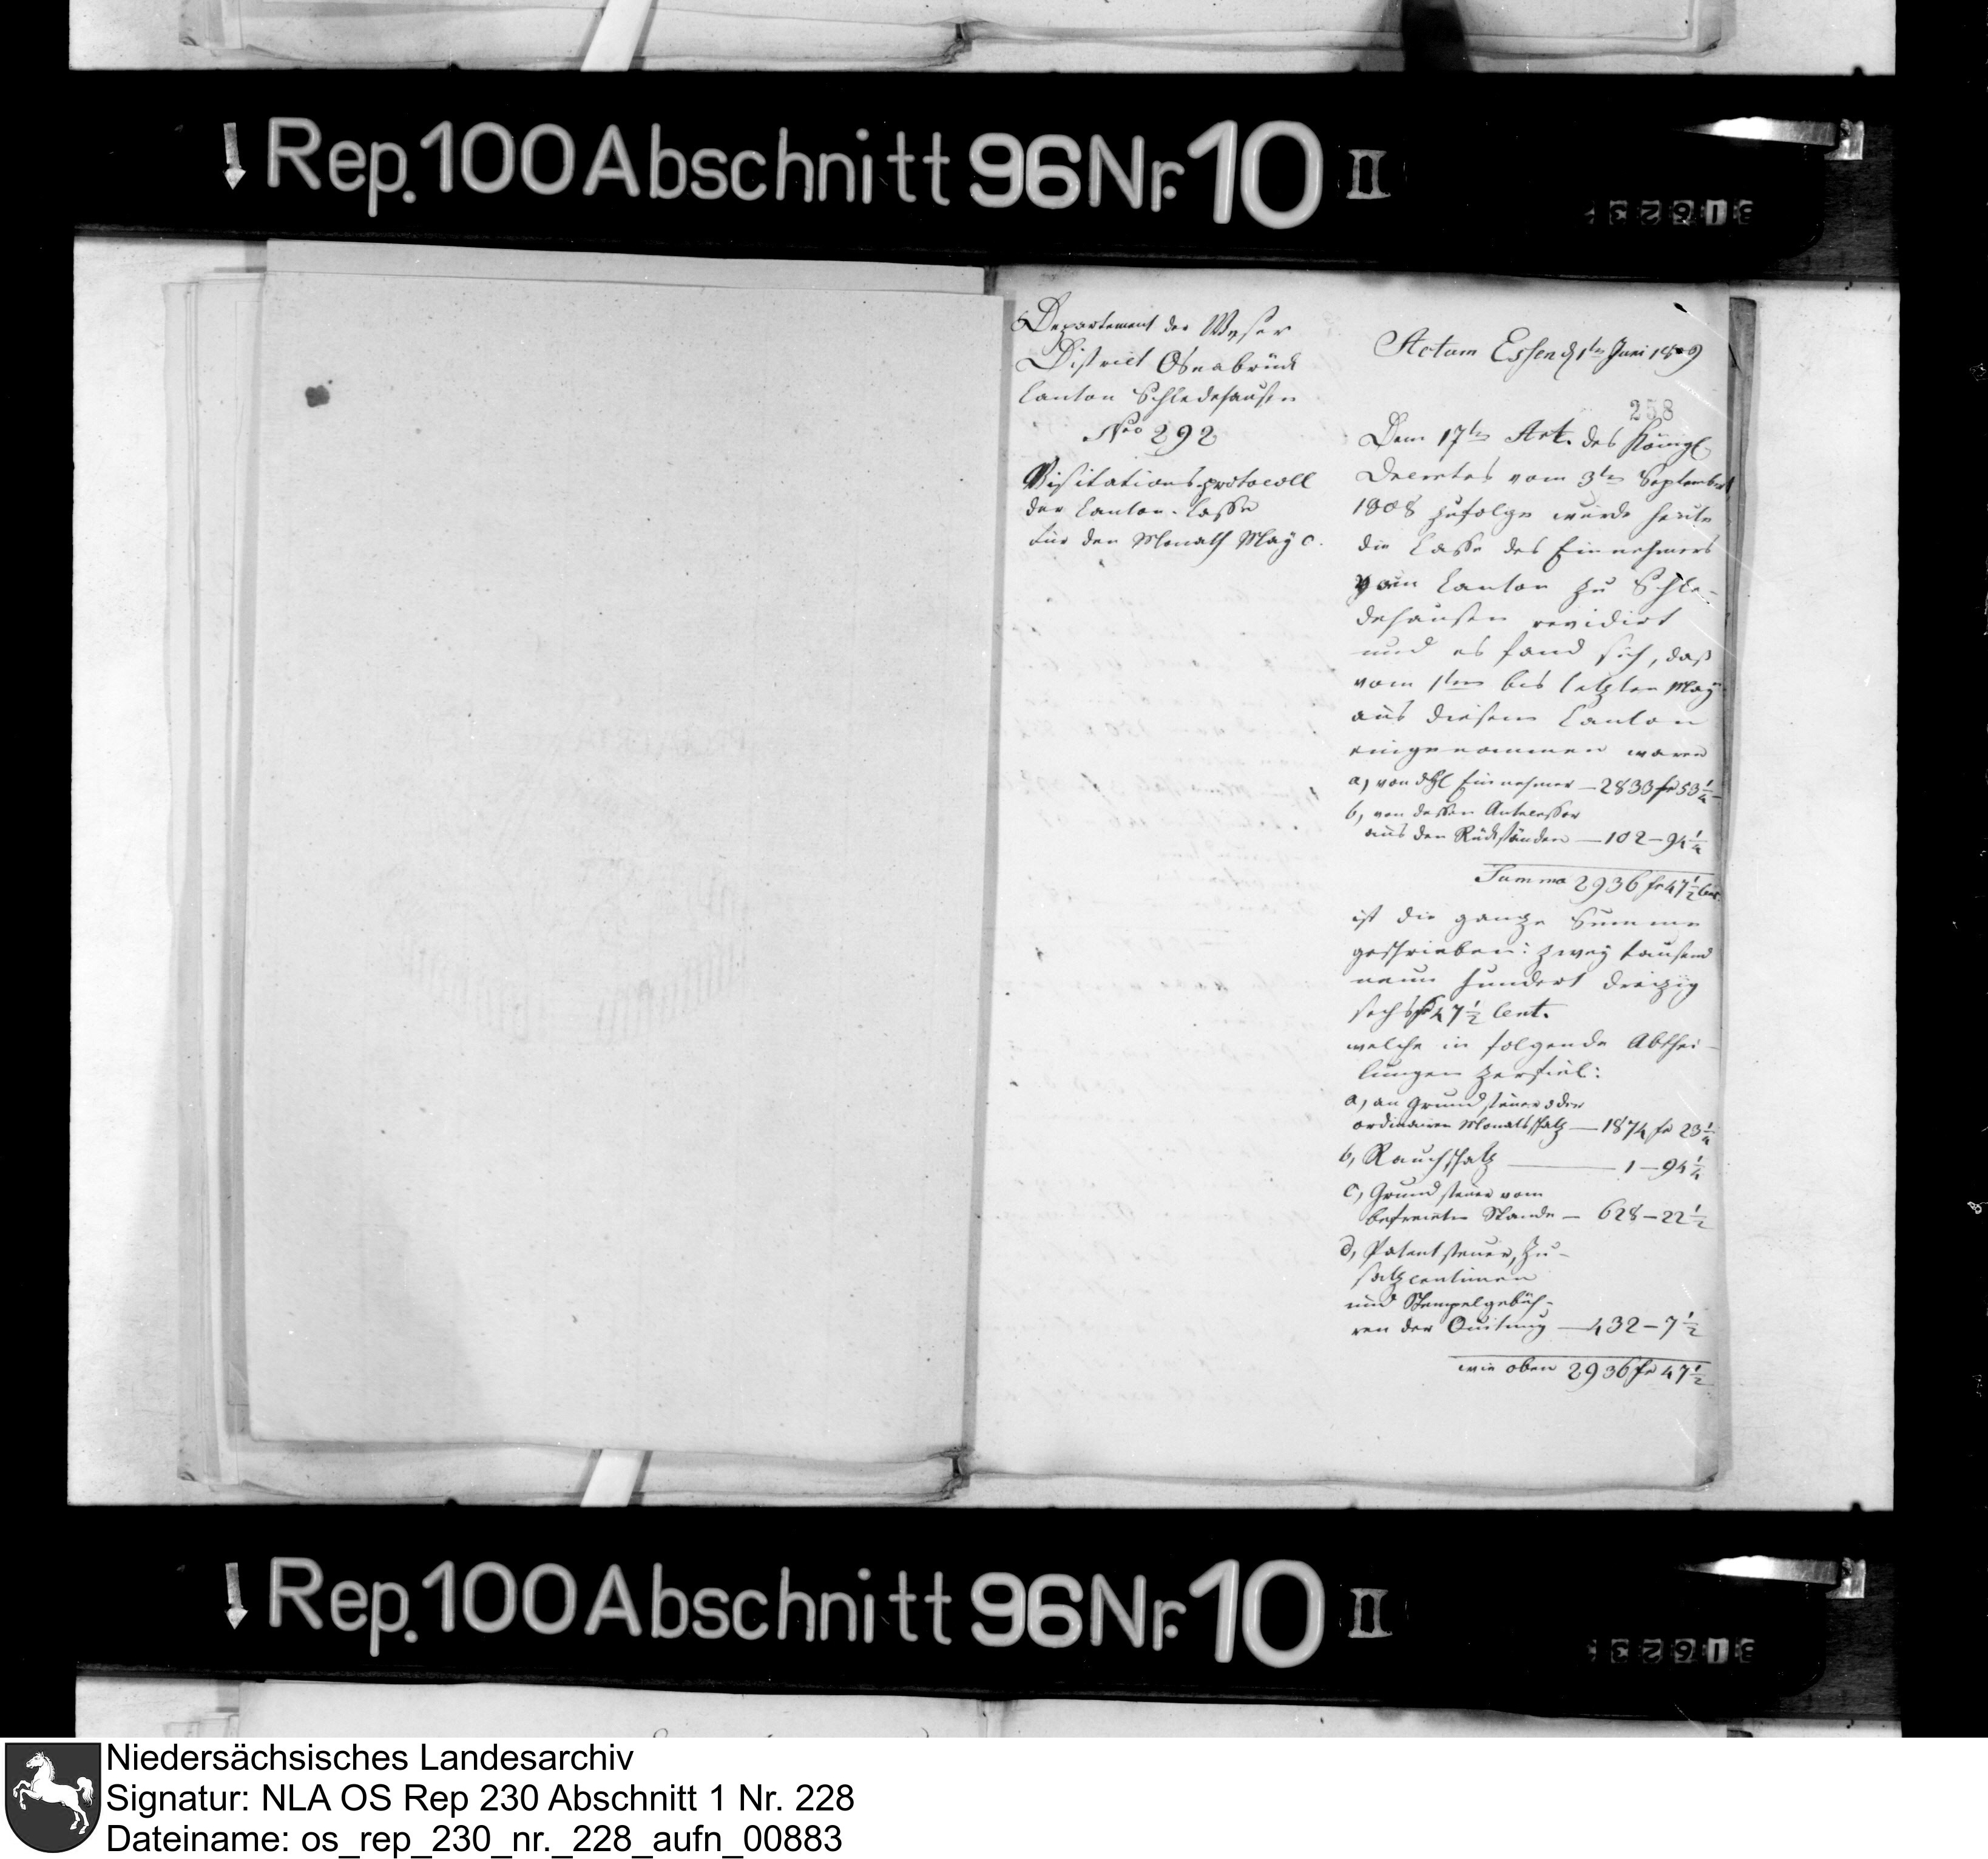 Rep. 100 Abschnitt 96 Nr. 10 II
Departement der Weser
District Osnabrück
Canton Schledehausen
Nro 292
Visitationsprotocoll
der Canton-Casse
für den Monath May c.
Actum Essen d 1ten Juni 1809
258
Dem 17ten Art. des Königl.
Decretes vom 3ten September
1808 zufolge wurde heute
die Casse des Einnehmers
vom Canton zu Schle-
dehausen revidirt
und es fand sich, daß
vom 1ten bis letzten May
aus diesem Canton
eingenommen waren
a, von Einnehmer — 2833 fr 53 1/4
b, von dessen Antecessor
aus den Rückständen — 102 — 94 1/4
Summa 2936 fr 47 1/2 Cent.
ist die ganze Summe
geschrieben: zwey tausend
neun hundert dreizig
sechs fr 47 1/2 Cent.
welche in folgende Abthei-
lungen zerfiel:
a, an Grundsteuer oder
ordinairen Monatsschatz — 1874 fr 23 1/4
b, Rauchschatz — 1 — 94 1/4
c, Grundsteuer vom
befreieten Stande — 628 — 22 1/2
d, Patentsteuer, Zu-
satzcentimen
und Stempelgebüh-
ren der Quitung — 432 — 7 1/2
wie oben 2936 fr 47 1/2
Rep. 100 Abschnitt 96 Nr. 10 II
Niedersächsisches Landesarchiv
Signatur: NLA OS Rep 230 Abschnitt 1 Nr. 228
Dateiname: os_rep_230_nr._228_aufn_00883